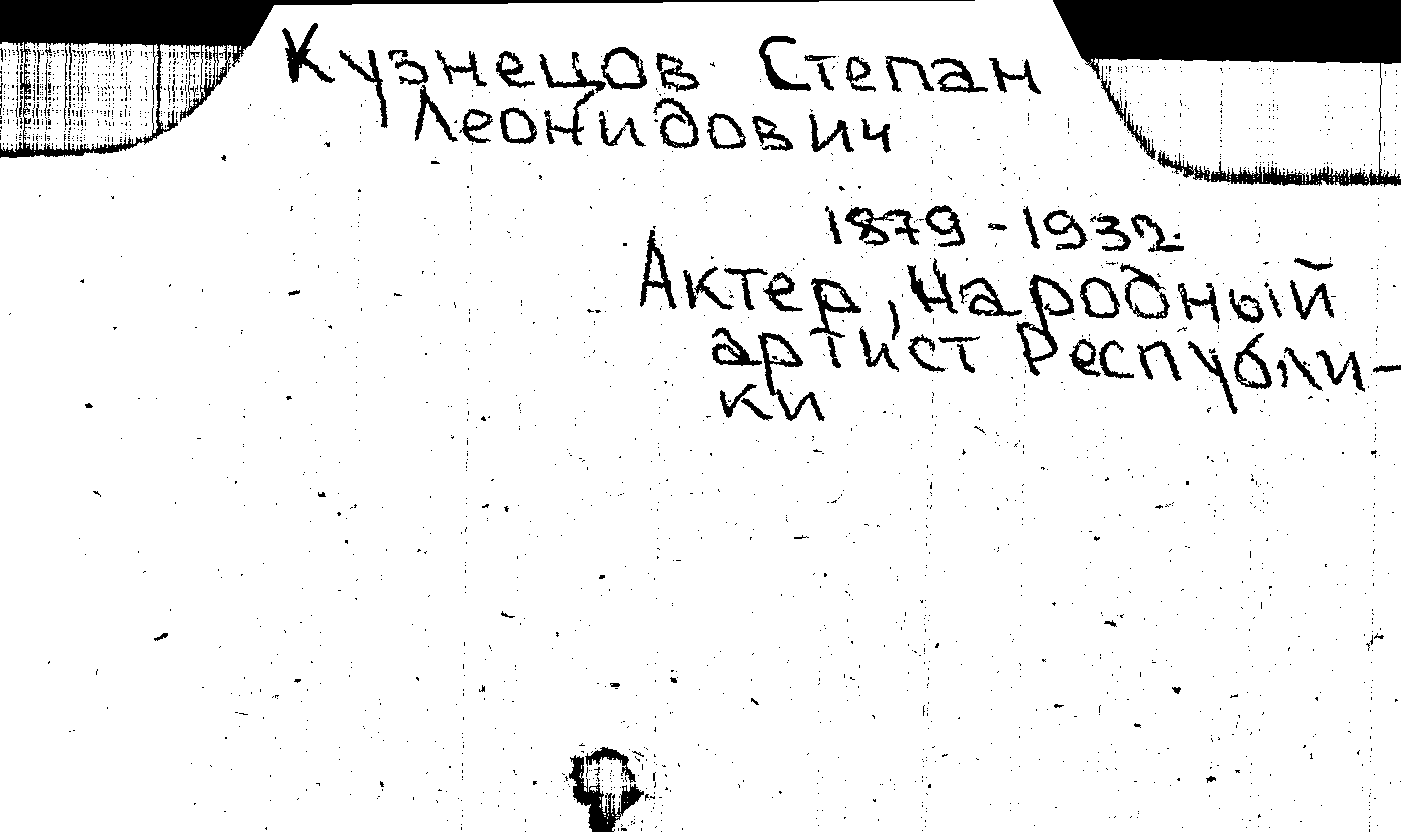 Кузнецов Степан
Леонидович
1879-1932.
Актер, Народный
артист Республи-
ки